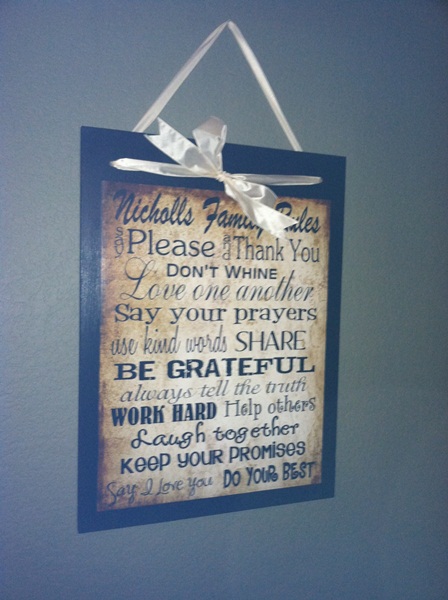 Nicholls Family Rules
say Please and Thank You
DON'T WHINE
Love one another
Say your prayers
use kind words SHARE
BE GRATEFUL
always tell the truth
WORK HARD Help others
Laugh together
KEEP YOUR PROMISES
Say I Love you DO YOUR BEST